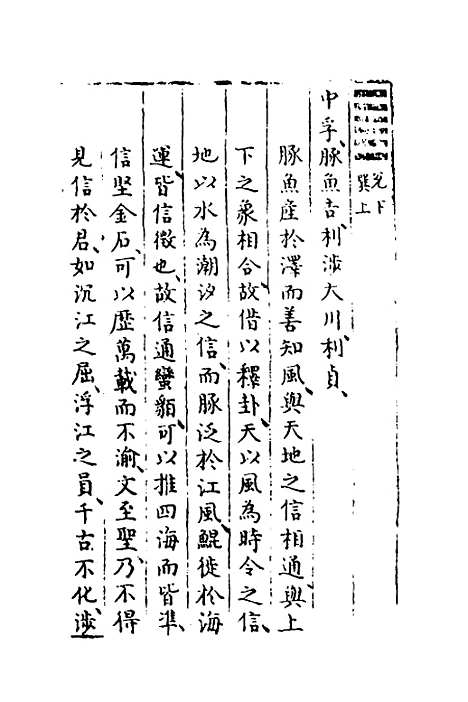 兌下
巽上
中孚、豚魚吉、利涉大川、利貞、
豚魚產於澤而善知風、與天地之信相通、與上
下之象相合、故借以釋卦、天以風為時令之信、
地以水為潮汐之信、而豚泛於江風、鯤徙於海
運、皆信徵也、故信通蠻貊、可以推四海而皆準、
信堅金石、可以歷萬載而不渝、文至聖、乃不得
見信於君、如沉江之屈、浮江之員、千古不化、涉